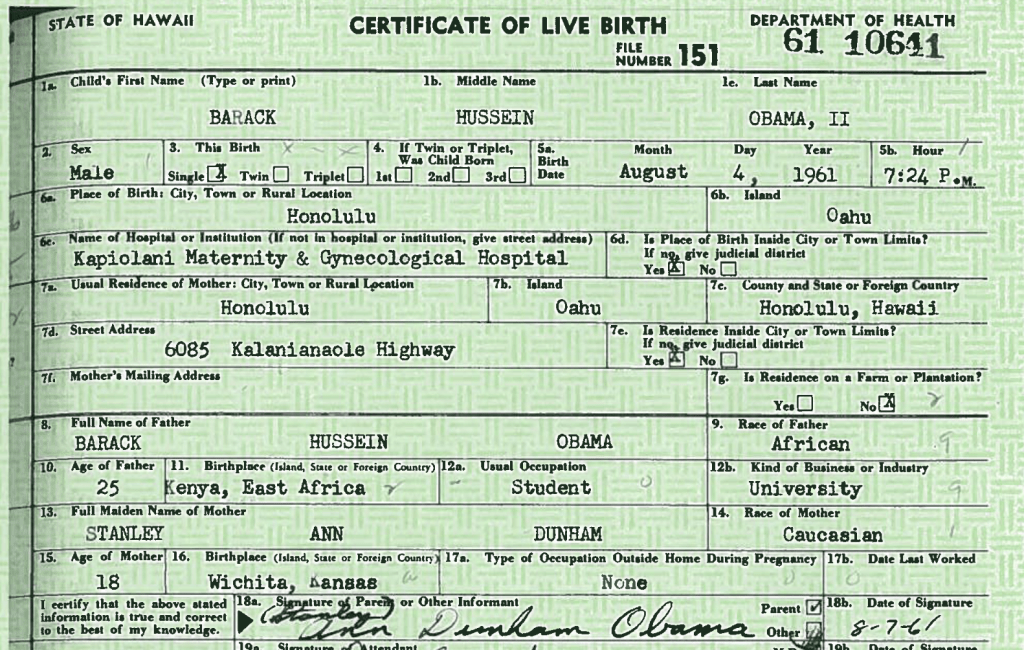 STATE OF HAWAII CERTIFICATE OF LIVE BIRTH DEPARTMENT OF HEALTH
FILE NUMBER 151 61 10641
1a. Child's First Name (Type or print) 1b. Middle Name 1c. Last Name
BARACK HUSSEIN OBAMA, II
2. Sex 3. This Birth 4. If Twin or Triplet, Was Child Born 5a. Birth Date Month Day Year 5b. Hour
Male Single X Twin Triplet 1st 2nd 3rd August 4, 1961 7:24 P.M.
6a. Place of Birth: City, Town or Rural Location 6b. Island
Honolulu Oahu
6c. Name of Hospital or Institution (If not in hospital or institution, give street address) 6d. Is Place of Birth Inside City or Town Limits?
If no, give judicial district
Kapiolani Maternity & Gynecological Hospital Yes X No
7a. Usual Residence of Mother: City, Town or Rural Location 7b. Island 7c. County and State or Foreign Country
Honolulu Oahu Honolulu, Hawaii
7d. Street Address 7e. Is Residence Inside City or Town Limits?
If no, give judicial district
6085 Kalanianaole Highway Yes X No
7f. Mother's Mailing Address 7g. Is Residence on a Farm or Plantation?
Yes No X
8. Full Name of Father 9. Race of Father
BARACK HUSSEIN OBAMA African 9
10. Age of Father 11. Birthplace (Island, State or Foreign Country) 12a. Usual Occupation 12b. Kind of Business or Industry
25 Kenya, East Africa Student 0 University 9
13. Full Maiden Name of Mother 14. Race of Mother
STANLEY ANN DUNHAM Caucasian 1
15. Age of Mother 16. Birthplace (Island, State or Foreign Country) 17a. Type of Occupation Outside Home During Pregnancy 17b. Date Last Worked
18 Wichita, Kansas None 0 0
I certify that the above stated information is true and correct to the best of my knowledge. 18a. Signature of Parent or Other Informant Parent ✓ Other 18b. Date of Signature
(Stanley) Ann Dunham Obama 8-7-61
19a. Signature of Attendant 19b. Date of Signature